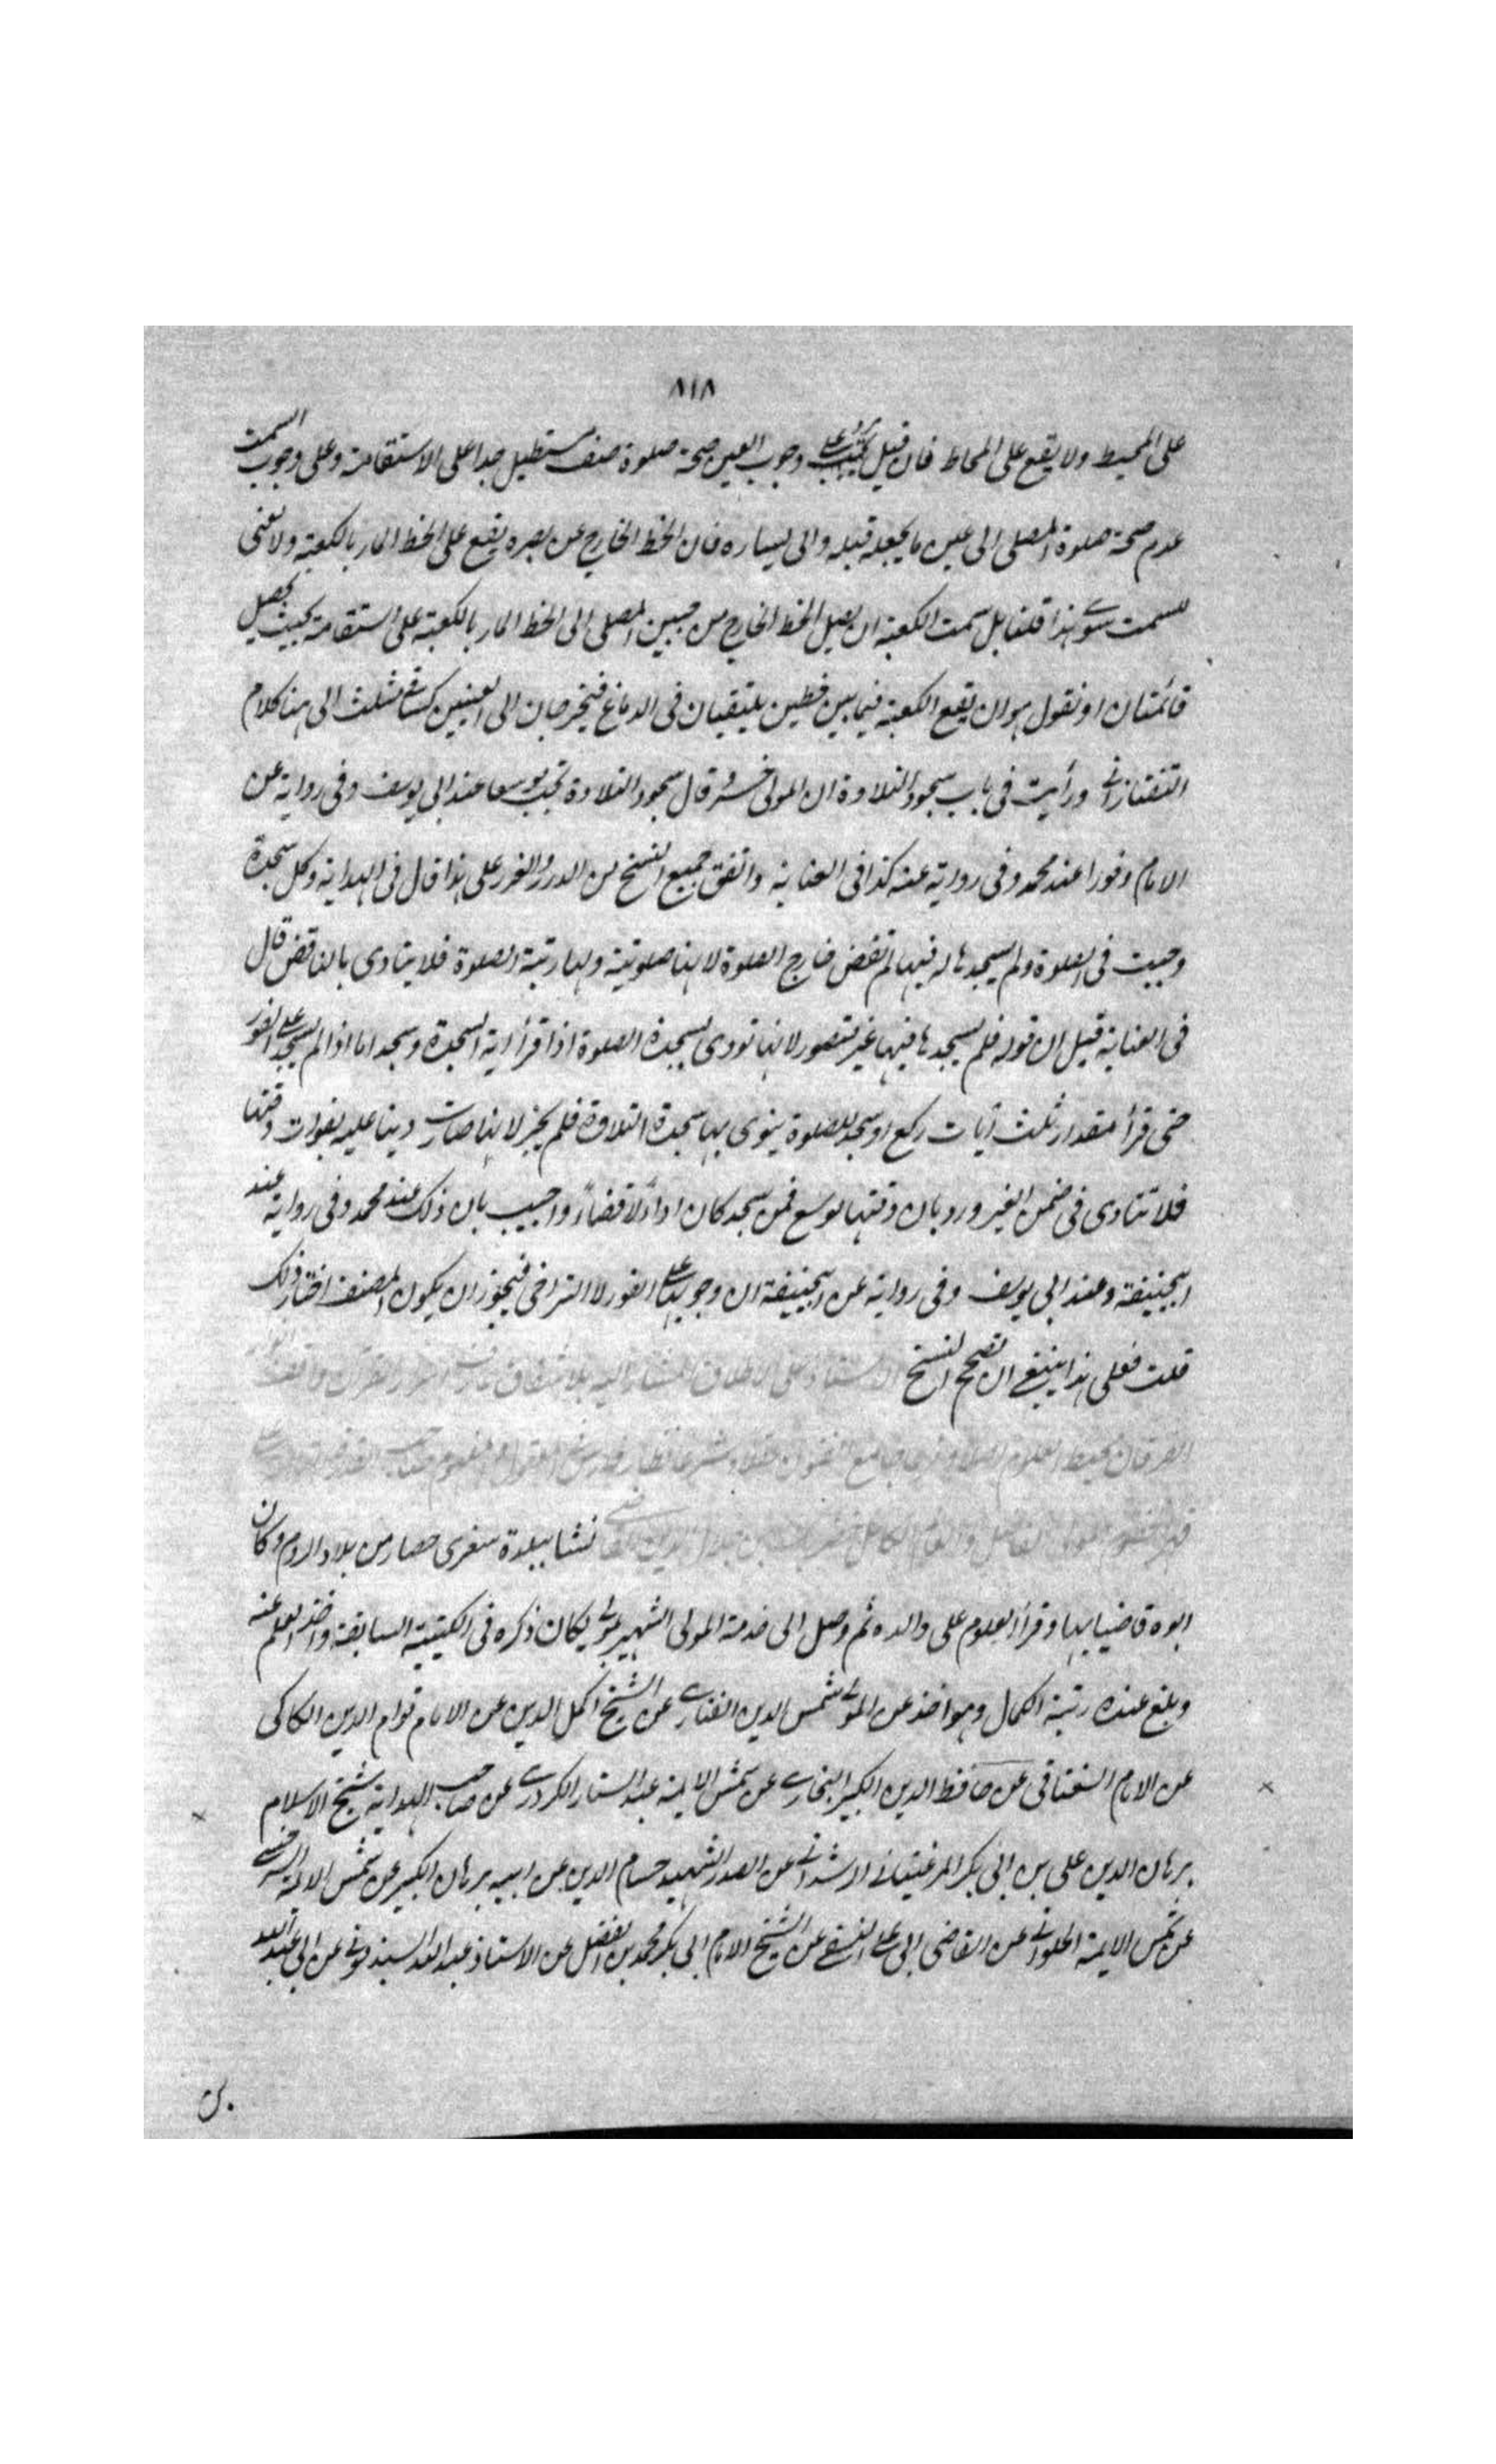 ٨١٨
على المحيط ولا يقع على المحاط فان قيل وجوب العين صحة صلوة صف مستطيل جدا على الاستقامة وعلى وجوب السمت
عدم صحة صلوة المصلى الى عين ما يجعله قبله والى يساره فان الخط الخارج عن بصره يقع على الخط المار بالكعبة ولا نعنى
للسمت سوى هذا قلنا بل سمت الكعبة ان يصل الخط الخارج من جبين المصلى الى الخط المار بالكعبة على استقامة بحيث يحصل
قائمتان او نقول هو ان يقع الكعبة فيما بين خطين يلتقيان فى الدماغ فيخرجان الى العينين كساقى مثلث الى هنا كلام
التفتازانى ورأيت فى باب سجود التلاوة ان المولى خسرو قال سجود التلاوة تجب موسعا عند ابى يوسف وفى رواية عن
الامام وفورا عند محمد وفى رواية عنه كذا فى العناية واتفق جميع النسخ من الدرر والغرر على هذا قال فى الهداية وكل سجدة
وجبت فى الصلوة ولم يسجدها له فيها لم تقض خارج الصلوة لانها صلوتية ولها رتبة الصلوة فلا يتادى بالناقص قال
فى العناية قيل ان قوله فلم يسجدها فيها غير متصور لانها تودى بسجدة الصلوة اذا قرأ اية السجدة وسجد اما اذا لم يسجد على الفور
حتى قرأ مقدار ثلث آيات ركع او سجد للصلوة ينوى بها سجدة التلاوة فلم يجز لانها صارت دينا عليه بفوات وقتها
فلا تتادى فى ضمن الغير ورد بان وقتها موسع فمن سجد كان اداءً لا قضاءً واجيب بان ذلك عند محمد وفى رواية عند
ابيحنيفة وعند ابى يوسف وفى رواية عن ابيحنيفة ان وجوبها على الفور لا التراخى فيجوز ان يكون المصنف اختار ذلك
قلت فعلى هذا ينبغى ان تصحح النسخ على الاطلاق المشار اليه بالاتفاق
محيط العلوم جامع
نشا ببلدة سفرى حصار من بلاد الروم وكان
ابوه قاضيا بها وقرأ العلوم على والده ثم وصل الى خدمة المولى الشهير بمولى يكان ذكره فى الكتيبة السابقة واخذ العلم عنه
وبلغ عنده رتبة الكمال وهو اخذ عن المولى شمس الدين الفنارى عن الشيخ اكمل الدين عن الامام قوام الدين الكاكى
عن الامام السغناقى عن حافظ الدين الكبير البخارى عن شمس الايمة عبد الستار الكردرى عن صاحب الهداية شيخ الاسلام
برهان الدين على بن ابى بكر المرغينانى الرشدانى عن الصدر الشهيد حسام الدين عن ابيه برهان الكبير عن شمس الايمة السرخسى
عن شمس الايمة الحلوانى عن القاضى ابى على النسفى عن الشيخ الامام ابى بكر محمد بن الفضل عن الاستاذ عبد الله السبذمونى عن ابى عبد الله
بن